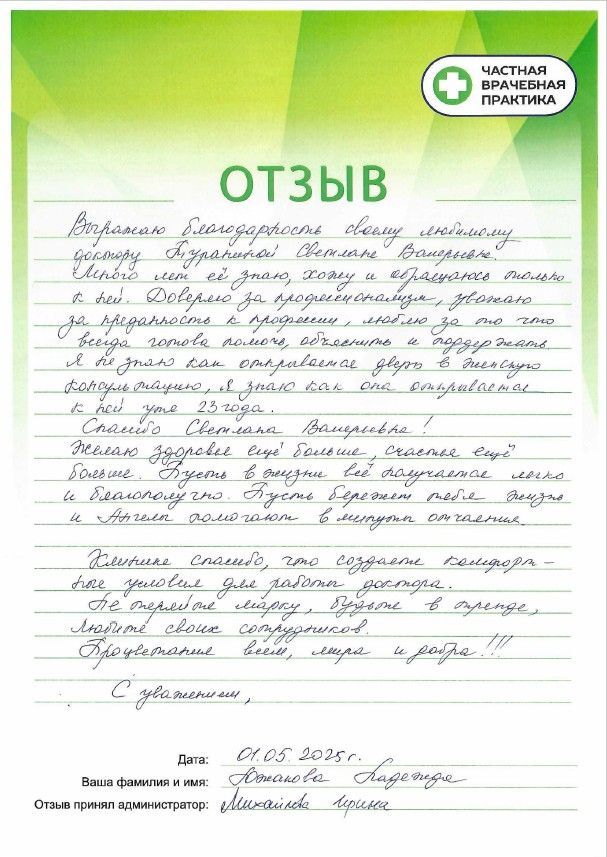 ЧАСТНАЯ
ВРАЧЕБНАЯ
ПРАКТИКА
ОТЗЫВ
Выражаю благодарность своему любимому
доктору Тураниной Светлане Валерьевне.
Много лет её знаю, хожу и обращаюсь только
к ней. Доверяю за профессионализм, уважаю
за преданность к профессии, люблю за то что
всегда готова помочь, объяснить и поддержать
Я не знаю как открывается дверь в женскую
консультацию, я знаю как она открывается
к ней уже 23 года.
Спасибо Светлана Валерьевна!
Желаю здоровья ещё больше, счастья ещё
больше. Пусть в жизни всё получается легко
и благополучно. Пусть бережет тебя жизнь
и Ангелы помогают в минуты отчаяния.
Клинике спасибо, что создаете комфорт-
ные условия для работы доктора.
Не теряйте марку, будьте в тренде,
любите своих сотрудников.
Процветания всем, мира и добра!!!
С уважением,
Дата: 01.05.2025г.
Ваша фамилия и имя: Южакова Надежда
Отзыв принял администратор: Михайлова Ирина